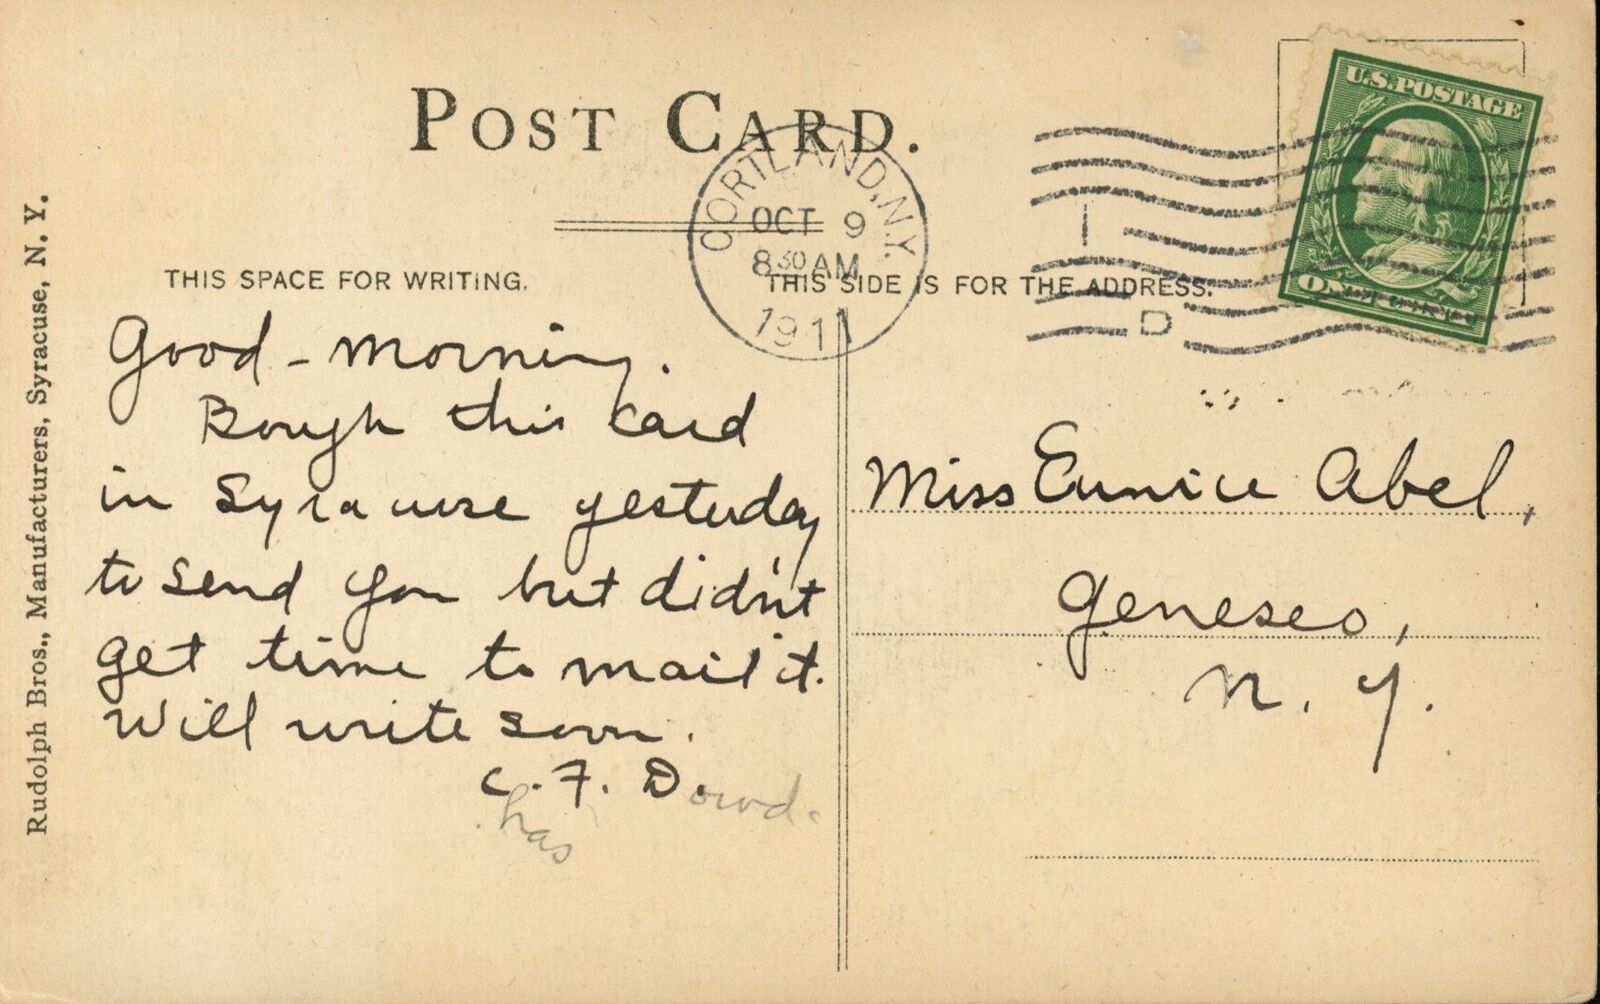 POST CARD.
CORTLAND, N.Y.
OCT 9
8 30 AM
1911
U.S. POSTAGE
ONE CENT
THIS SPACE FOR WRITING.
THIS SIDE IS FOR THE ADDRESS.
Rudolph Bros., Manufacturers, Syracuse, N. Y.
Good-morning.
Bough this card
in Syracuse yesterday
to send you but didn't
get time to mail it.
Will write soon.
C. F. Dowd.
has
Miss Eunice Abel,
Geneseo,
N. Y.
D